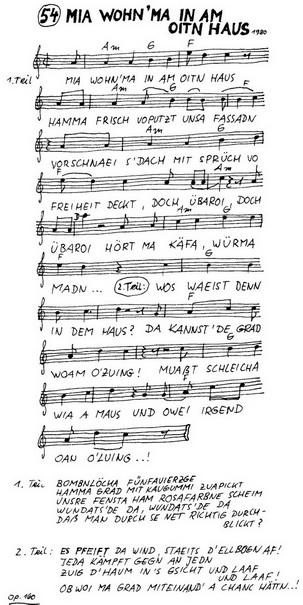 54 MIA WOHN'MA IN AM
OITN HAUS 1980
Am G F
1. Teil MIA WOHN'MA IN AM OITN HAUS
Am G F
HAMMA FRISCH VOPUTZT UNSA FASSADN
Am G
VORSCHNAEI S'DACH MIT SPRÜCH VO
F Am
FREIHEIT DECKT, DOCH, ÜBAROI, DOCH
Am G
ÜBAROI HÖRT MA KÄFA, WÜRMA
F G
MADN... 2. Teil: WOS WAEIST DENN
F
IN DEM HAUS? DA KANNST'DE GRAD
G
WOAM O'ZUING! MUAẞT SCHLEICHA
F
WIA A MAUS UND OWEI IRGEND
OAN O'LUING..!
1. Teil BOMBNLÖCHA FÜNFAUIERZGE
HAMMA GRAD MIT KAUGUMMI ZUAPICKT
UNSRE FENSTA HAM ROSAFARBNE SCHEIM
WUNDATS'DE DA, WUNDATS'DE DA
DAẞ MAN DURCH SE NET RICHTIG DURCH-
BLICKT?
2. Teil: ES PFEIFT DA WIND, STAEITS D'ELLBOGN AF!
JEDA KÄMPFT GEGN AN JEDN
ZUIG D'HAUM IN'S GSICHT UND LAAF
UND LAAF!
OB WOI MA GRAD MITEINAND' A CHANC HÄTTN..!
Op. 160